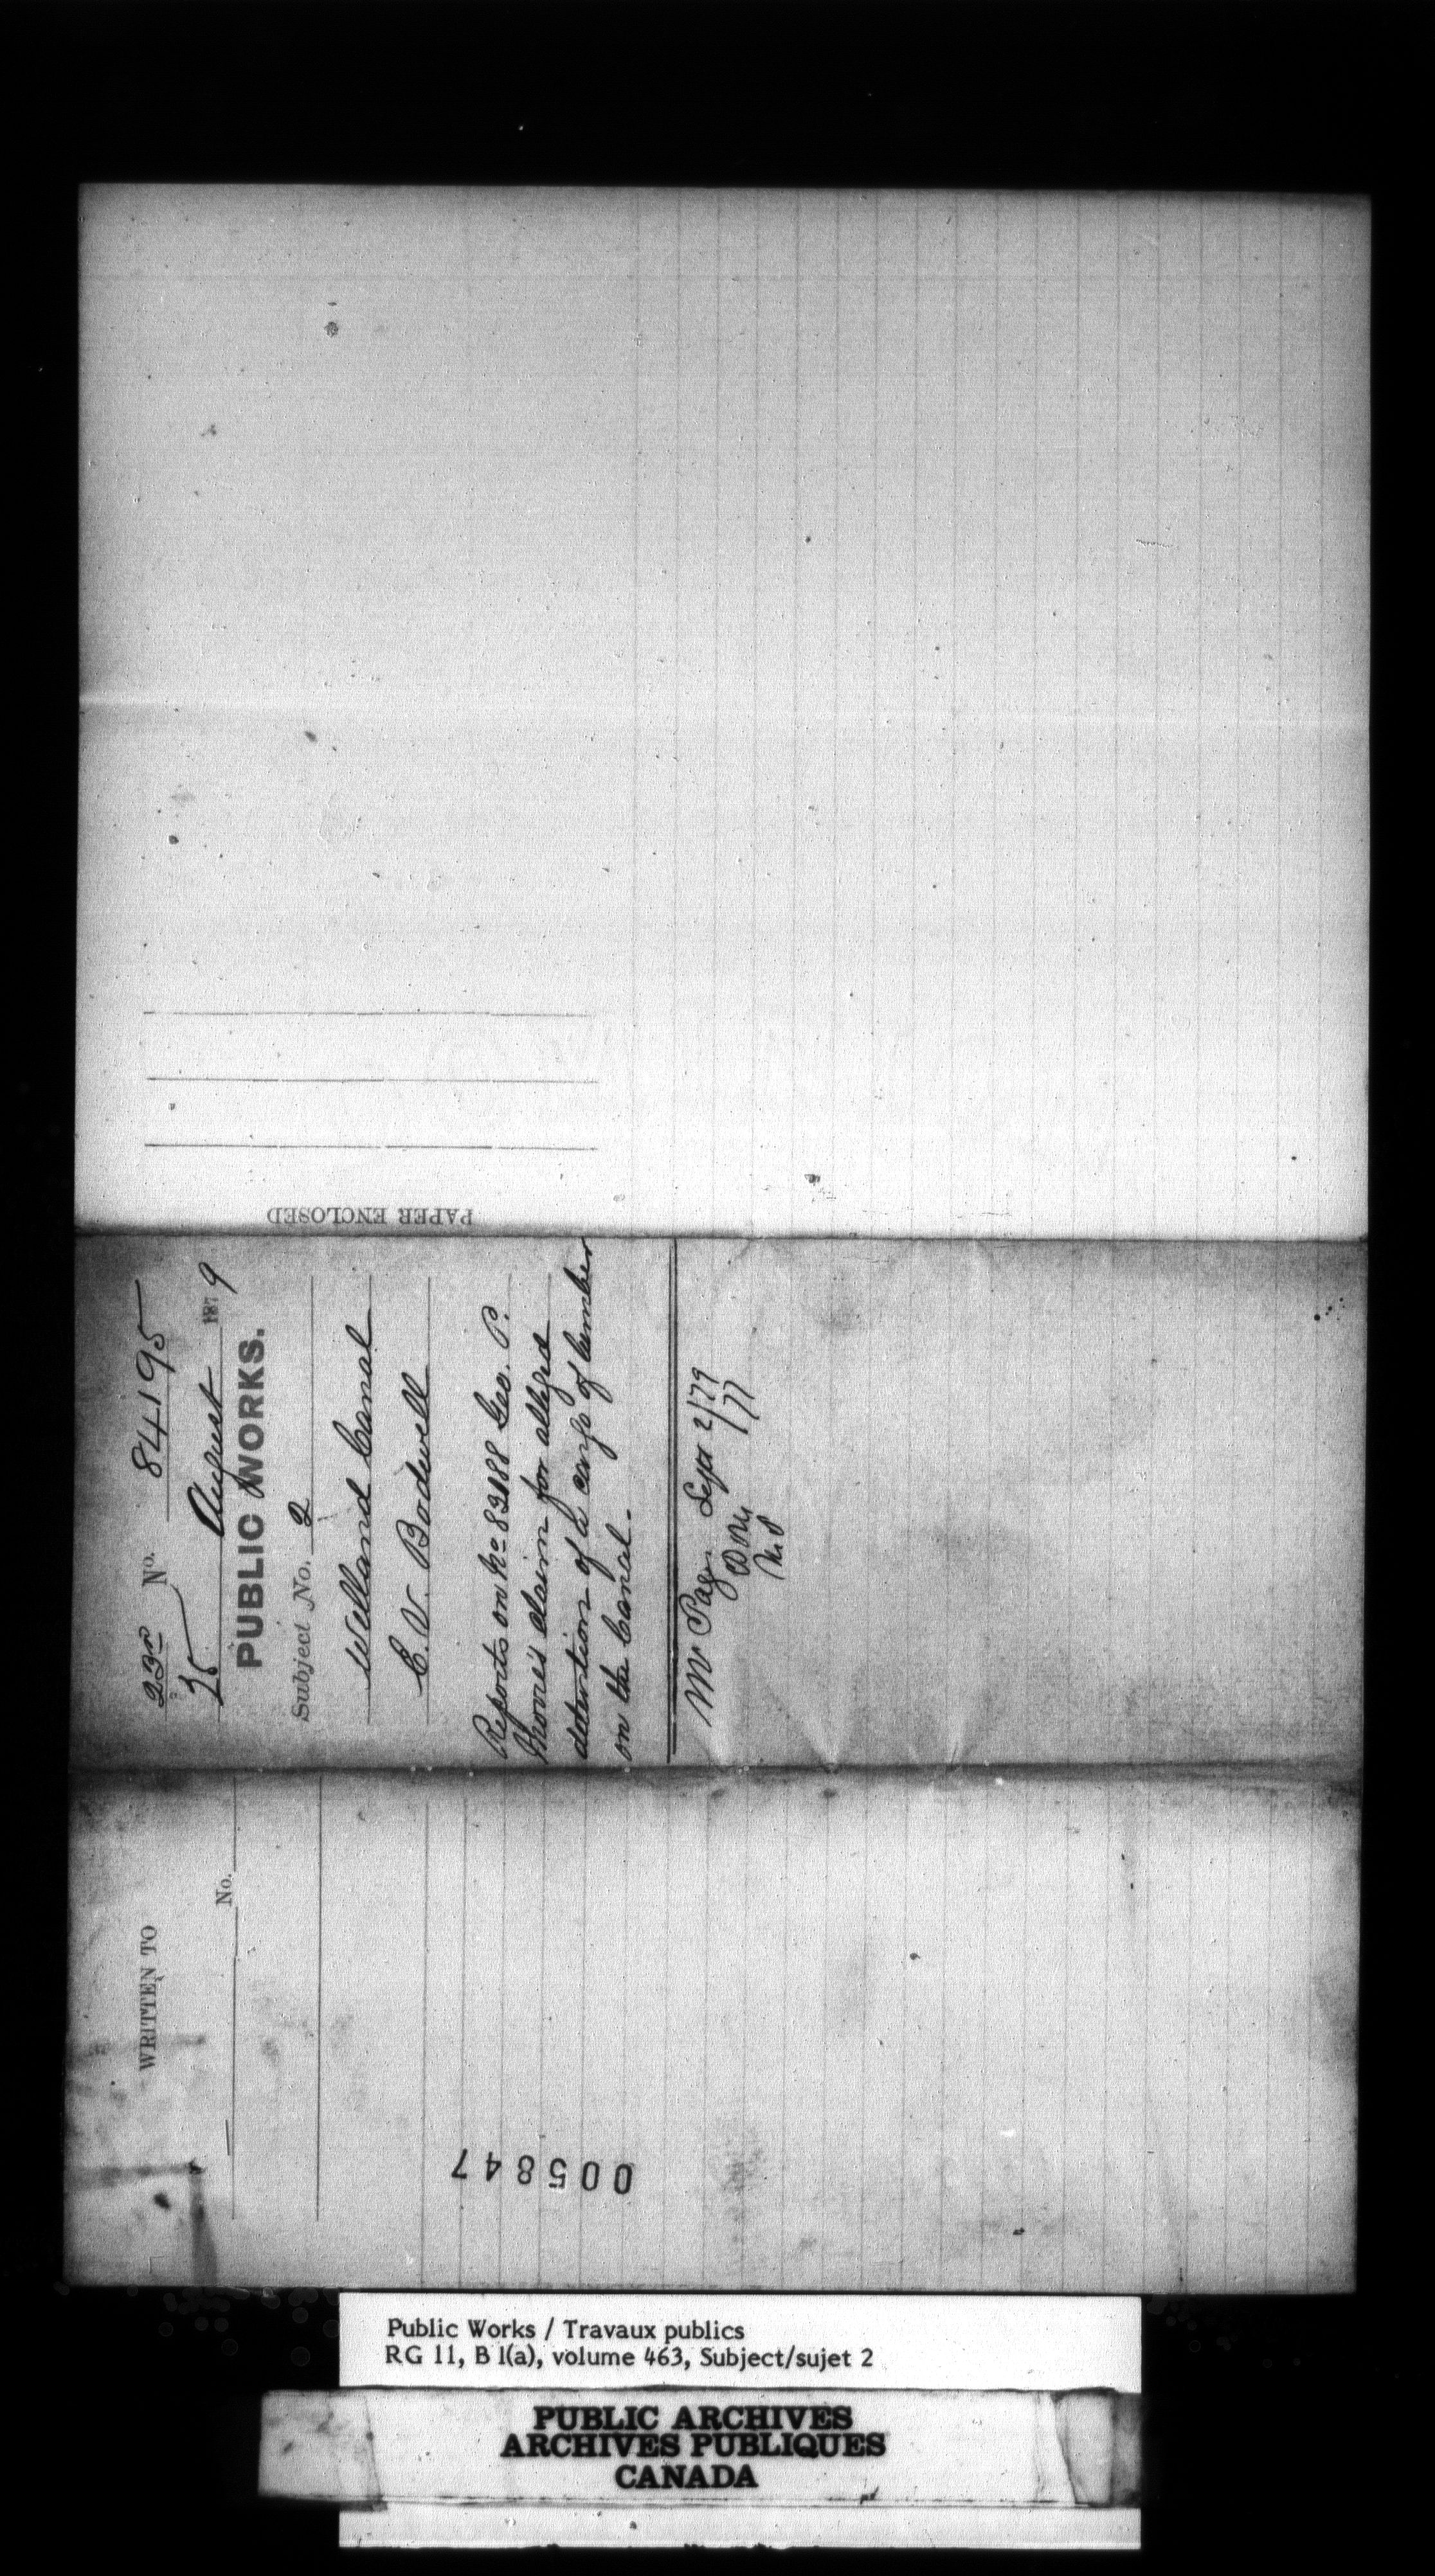 PAPER ENCLOSED
23rd No. 84195
25 August 1879
PUBLIC WORKS.
Subject No. 2
Welland Canal
E. V. Bodwell
Reports on No 83188 Geo. P.
claim for alleged
detention of a cargo of lumber
on the Canal.
Mr Page Sept 2/79
/77
WRITTEN TO
No.
005847
Public Works / Travaux publics
RG 11, B 1(a), volume 463, Subject/sujet 2
PUBLIC ARCHIVES
ARCHIVES PUBLIQUES
CANADA